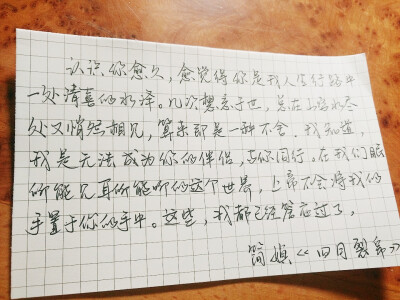 认识你愈久,愈觉得你是我人生行路中
一处清喜的水泽。几次想忘于世,总在山穷水尽
处又悄然相见,算来即是一种不舍。我知道,
我是无法成为你的伴侣,与你同行。在我们眼
所能见耳所能听的这个世界,上帝不会将我的
手置于你的手中。这些,我都已经答应过了。
简媜《四月裂帛》